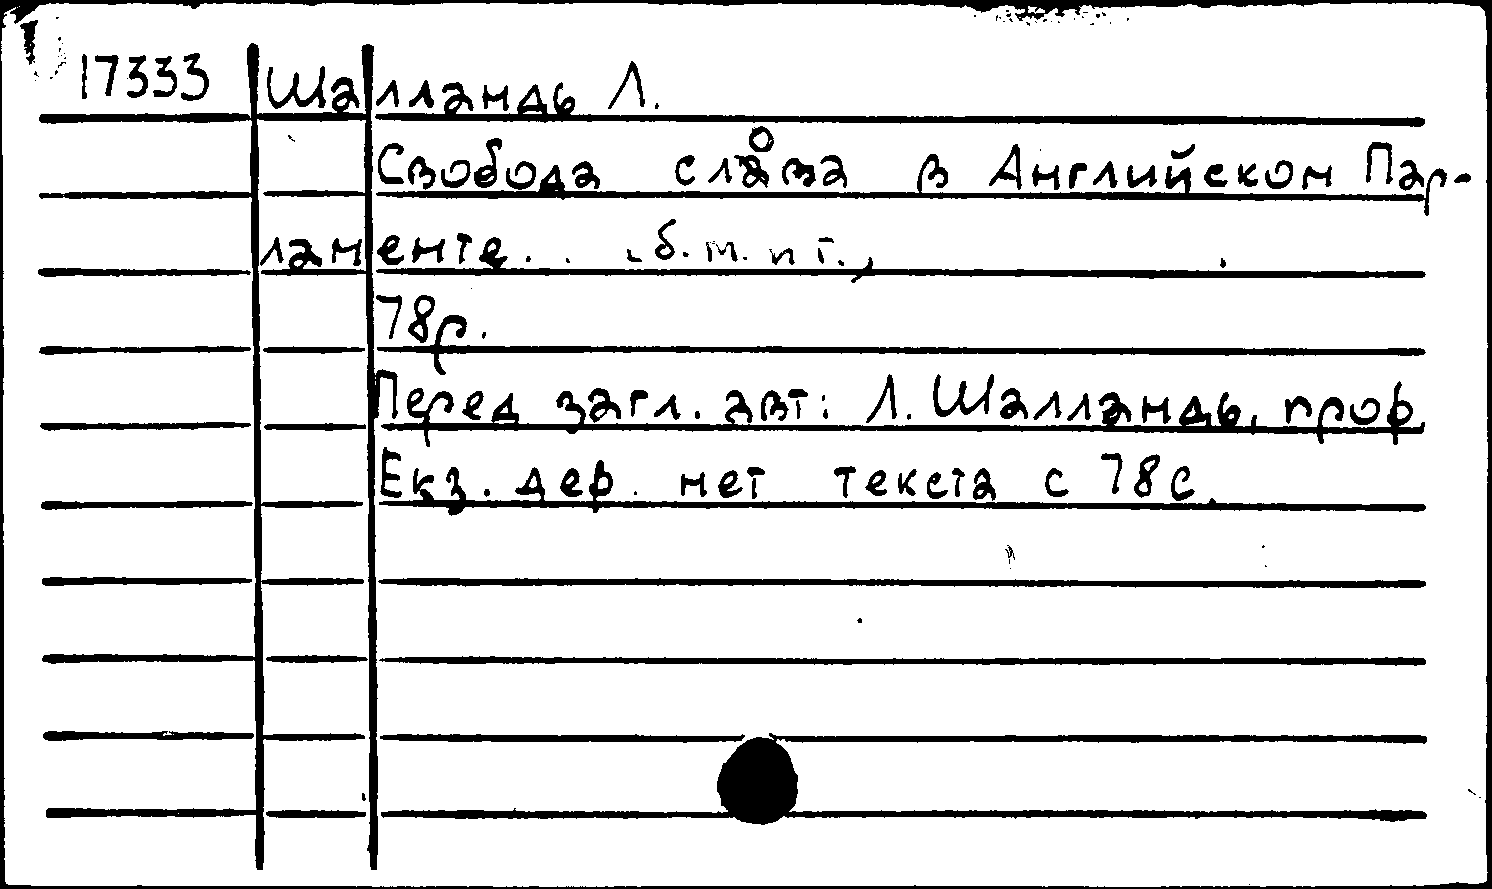 17333 Шалландь Л.
Свобода слова в Английском Пар-
ламенте... б.м. и г.,
78р.
Перед загл. авт: Л. Шалландь, проф.
Екз. деф. нет текста с 78с.